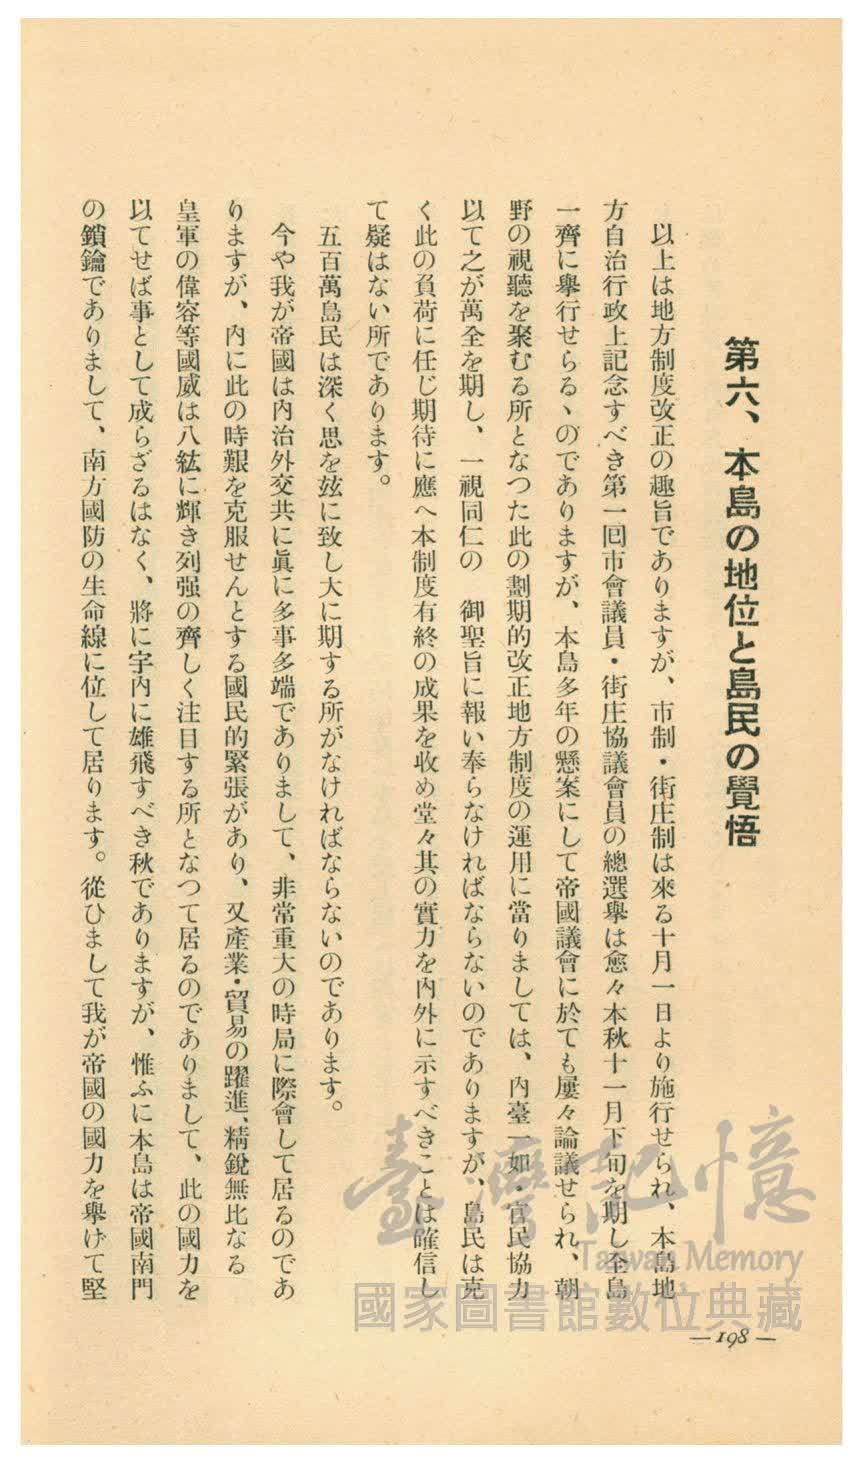 第六、本島の地位と島民の覺悟
以上は地方制度改正の趣旨でありますが、市制・街庄制は來る十月一日より施行せられ、本島地
方自治行政上記念すべき第一回市會議員・街庄協議會員の總選擧は愈々本秋十一月下旬を期し全島
一齊に擧行せらるゝのでありますが、本島多年の懸案にして帝國議會に於ても屢々論議せられ、朝
野の視聽を聚むる所となつた此の劃期的改正地方制度の運用に當りましては、內臺一如・官民協力
以て之が萬全を期し、一視同仁の　御聖旨に報い奉らなければならないのでありますが、島民は克
く此の負荷に任じ期待に應へ本制度有終の成果を收め堂々其の實力を內外に示すべきことは確信し
て疑はない所であります。
五百萬島民は深く思を玆に致し大に期する所がなければならないのであります。
今や我が帝國は內治外交共に眞に多事多端でありまして、非常重大の時局に際會して居るのであ
りますが、內に此の時艱を克服せんとする國民的緊張があり、又產業・貿易の躍進、精銳無比なる
皇軍の偉容等國威は八紘に輝き列强の齊しく注目する所となつて居るのでありまして、此の國力を
以てせば事として成らざるはなく、將に宇內に雄飛すべき秋でありますが、惟ふに本島は帝國南門
の鎖鑰でありまして、南方國防の生命線に位して居ります。從ひまして我が帝國の國力を擧げて堅
— 198 —
臺灣記憶
Taiwan Memory
國家圖書館數位典藏